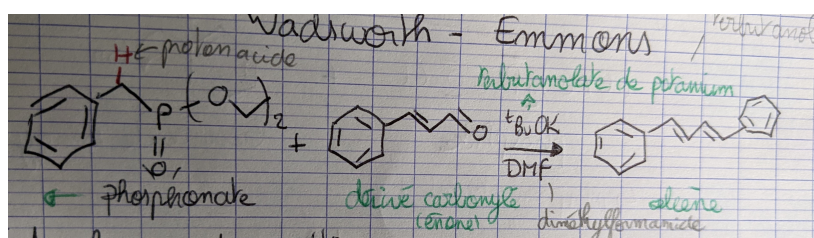 Wadsworth - Emmons
H ← proton acide
terbutanolate de potassium
P (O)2
O
+
O
tBuOK
DMF
phosphonate
dérivé carbonylé
alcène
(énone)
diméthylformamide